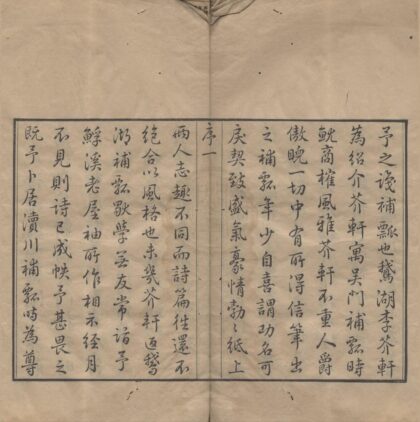 予之識補瓢也鵝湖李芥軒
為紹介芥軒寓吳門補瓢時
就商榷風雅芥軒不重人爵
傲睨一切中有所得信筆出
之補瓢年少自喜謂功名可
戾契致盛氣豪情勃〻紙上
序一
兩人志趣不同而詩篇往還不
絶合以風格也未幾芥軒返鵝
湖補瓢獨學無友常詣予
鯚溪老屋袖所作相示經月
不見則詩已成帙予甚畏之
既予卜居瀆川補瓢時為尊